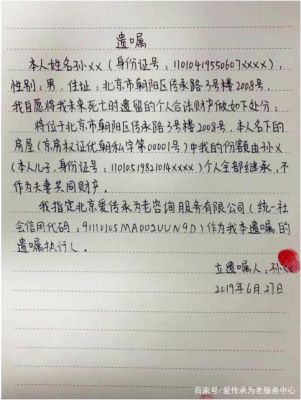 遗嘱
本人姓名孙XX(身份证号:11010419550607XXXX),
性别:男,住址:北京市朝阳区传承路3号楼2008号,
我自愿将我未来死亡的遗留的个人合法财产做如下处分:
将位于北京市朝阳区传承路3号楼2008号,本人名下的
房屋(京房权证优朝私字第00001号)中我的份额由孙X
(本人儿子,身份证号:11010519821014XXXX)个人全部继承,不
作为夫妻共同财产。
我指定北京爱传承为老咨询服务有限公司(统一社
会信用代码:91110105MA002UUN9D)作为我本遗嘱的
遗嘱执行人。
立遗嘱人:孙XX
2019年6月27日
百家号/爱传承为老服务中心